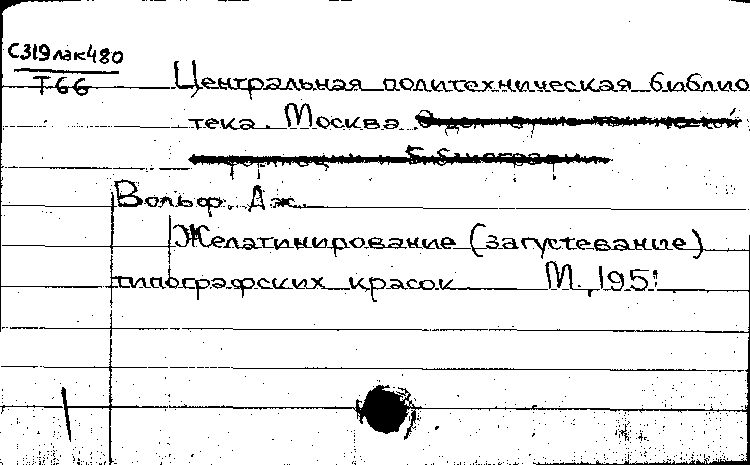 С319лак480
Т66
Центральная политехническая библио
тека. Москва.
Вольф. Дж.
Желатинирование (загустевание)
типографских красок М., 195